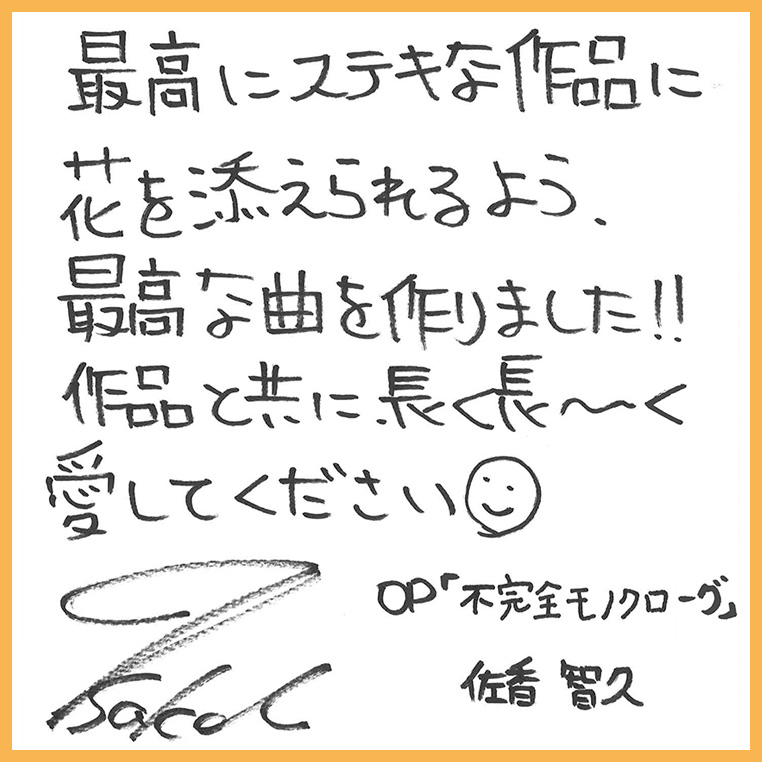 最高にステキな作品に
花を添えられるよう、
最高な曲を作りました!!
作品と共に長く長〜く
愛してください
OP「不完全モノローグ」
佐香 智久